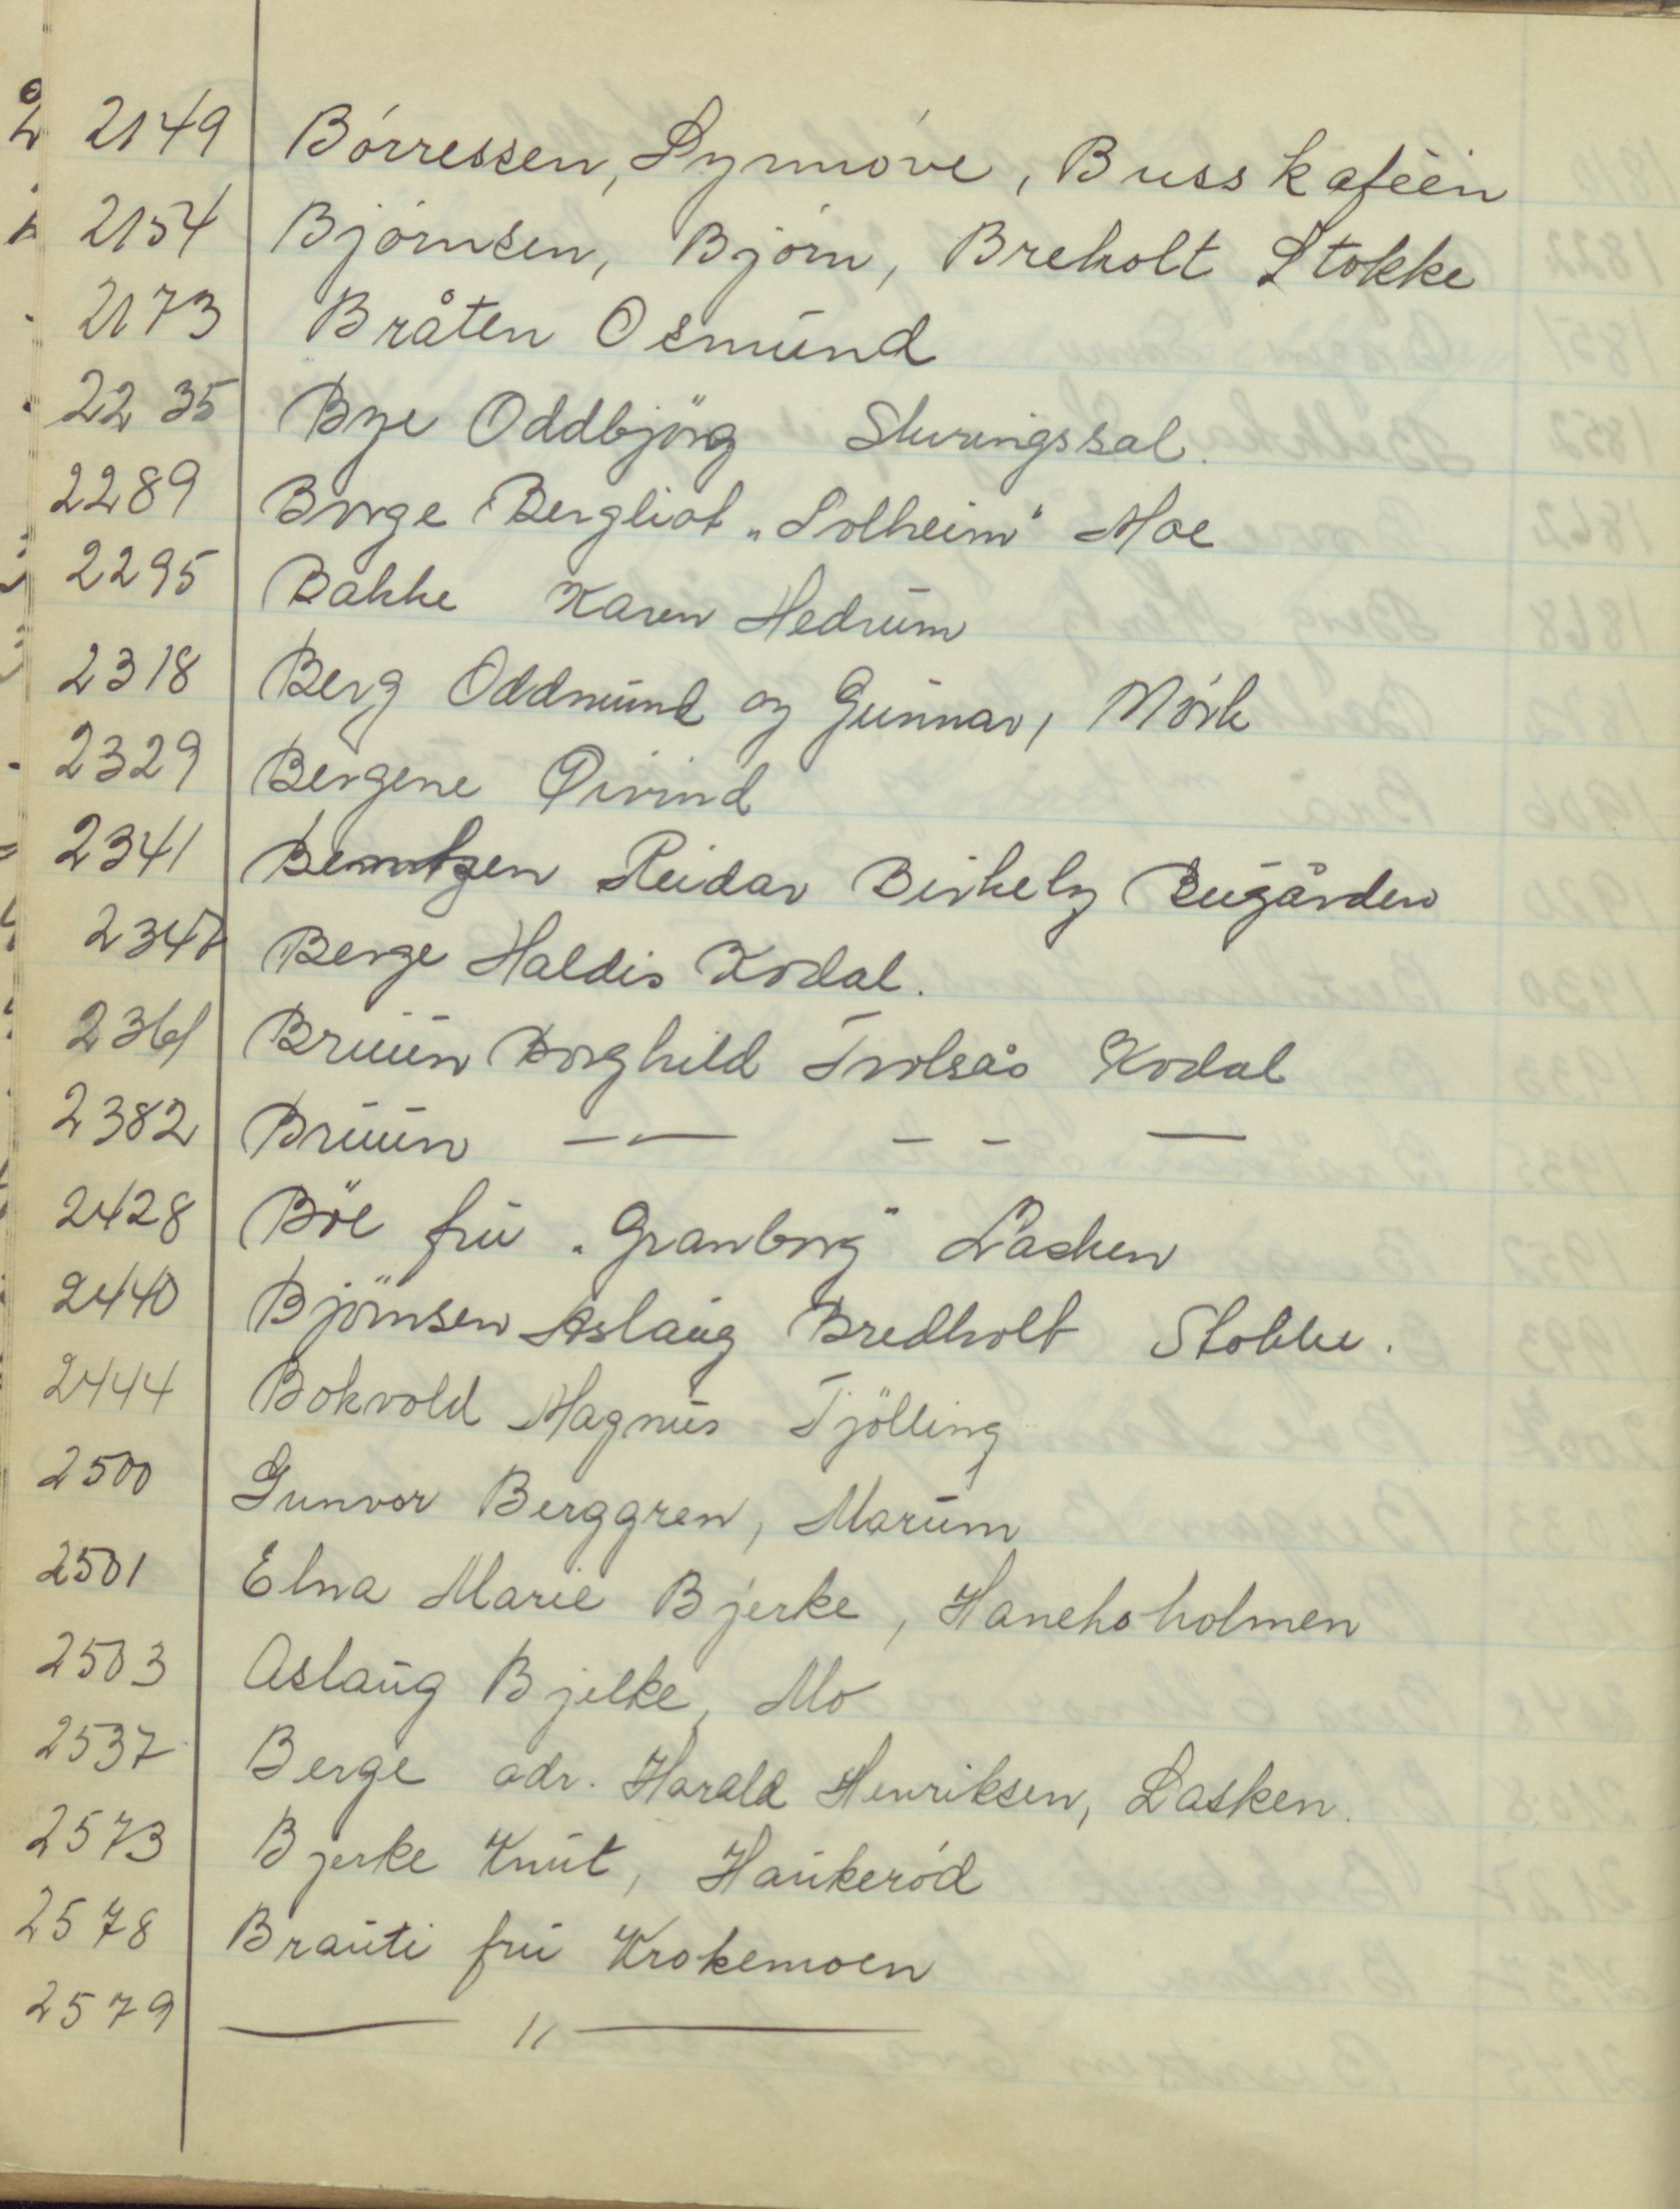 2149 Börressen, Synnöve, Busskaféen
2154 Björnsen, Björn, Breholt Stokke
2173 Bråten Osmund
2235 Bye Oddbjörg Skiringssal.
2289 Borge Bergliot „Solheim" Moe
2295 Bakke Karen Hedrum
2318 Berg Oddmund og Gunnar, Mörk
2329 Bergene Øivind
2341 Berntzen Reidar Birkely Bugården
Berge Haldis Kodal.
2361 Bruun Borghild Trolsås Kodal
2382 Bruun — — — — —
2428 Böe fru „Granborg" Lasken
2440 Björnsen Aslaug Bredholt Stokke.
2444 Bokvold Magnus Tjölling
2500 Gunvor Berggren, Marum
2501 Elna Marie Bjerke, Hanehoholmen
2503 Aslaug Bjelke, Mo
2537 Berge adr. Harald Henriksen, Lasken.
2573 Bjerke Knut, Haukeröd
2578 Brauti fru Krokemoen
2579 — " —